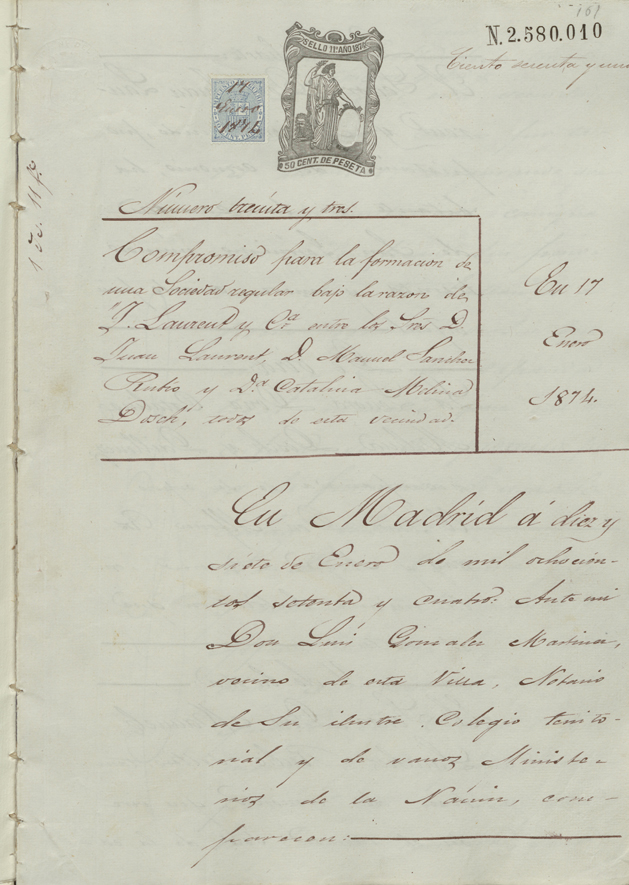 161
N. 2.580.010
Ciento sesenta y uno
SELLO 11º AÑO 1874
50 CENT. DE PESETA
17
Enero
1874
Número treinta y tres.
Compromiso para la formacion de
una Sociedad regular bajo la razon de
"J. Laurent y Cia" entre los Sres D.
Juan Laurent, D. Manuel Sanchez
Rubio y Dª Catalina Melina
Dosch, todos de esta vecindad.
En 17
Enero
1874.
En Madrid á diez y
siete de Enero de mil ochocien-
tos setenta y cuatro: Ante mi
Don Luis Gonzalez Martinez,
vecino de esta Villa, Notario
de Su ilustre Colegio territo-
rial y de varios Ministe-
rios de la Nación, com-
parecen: